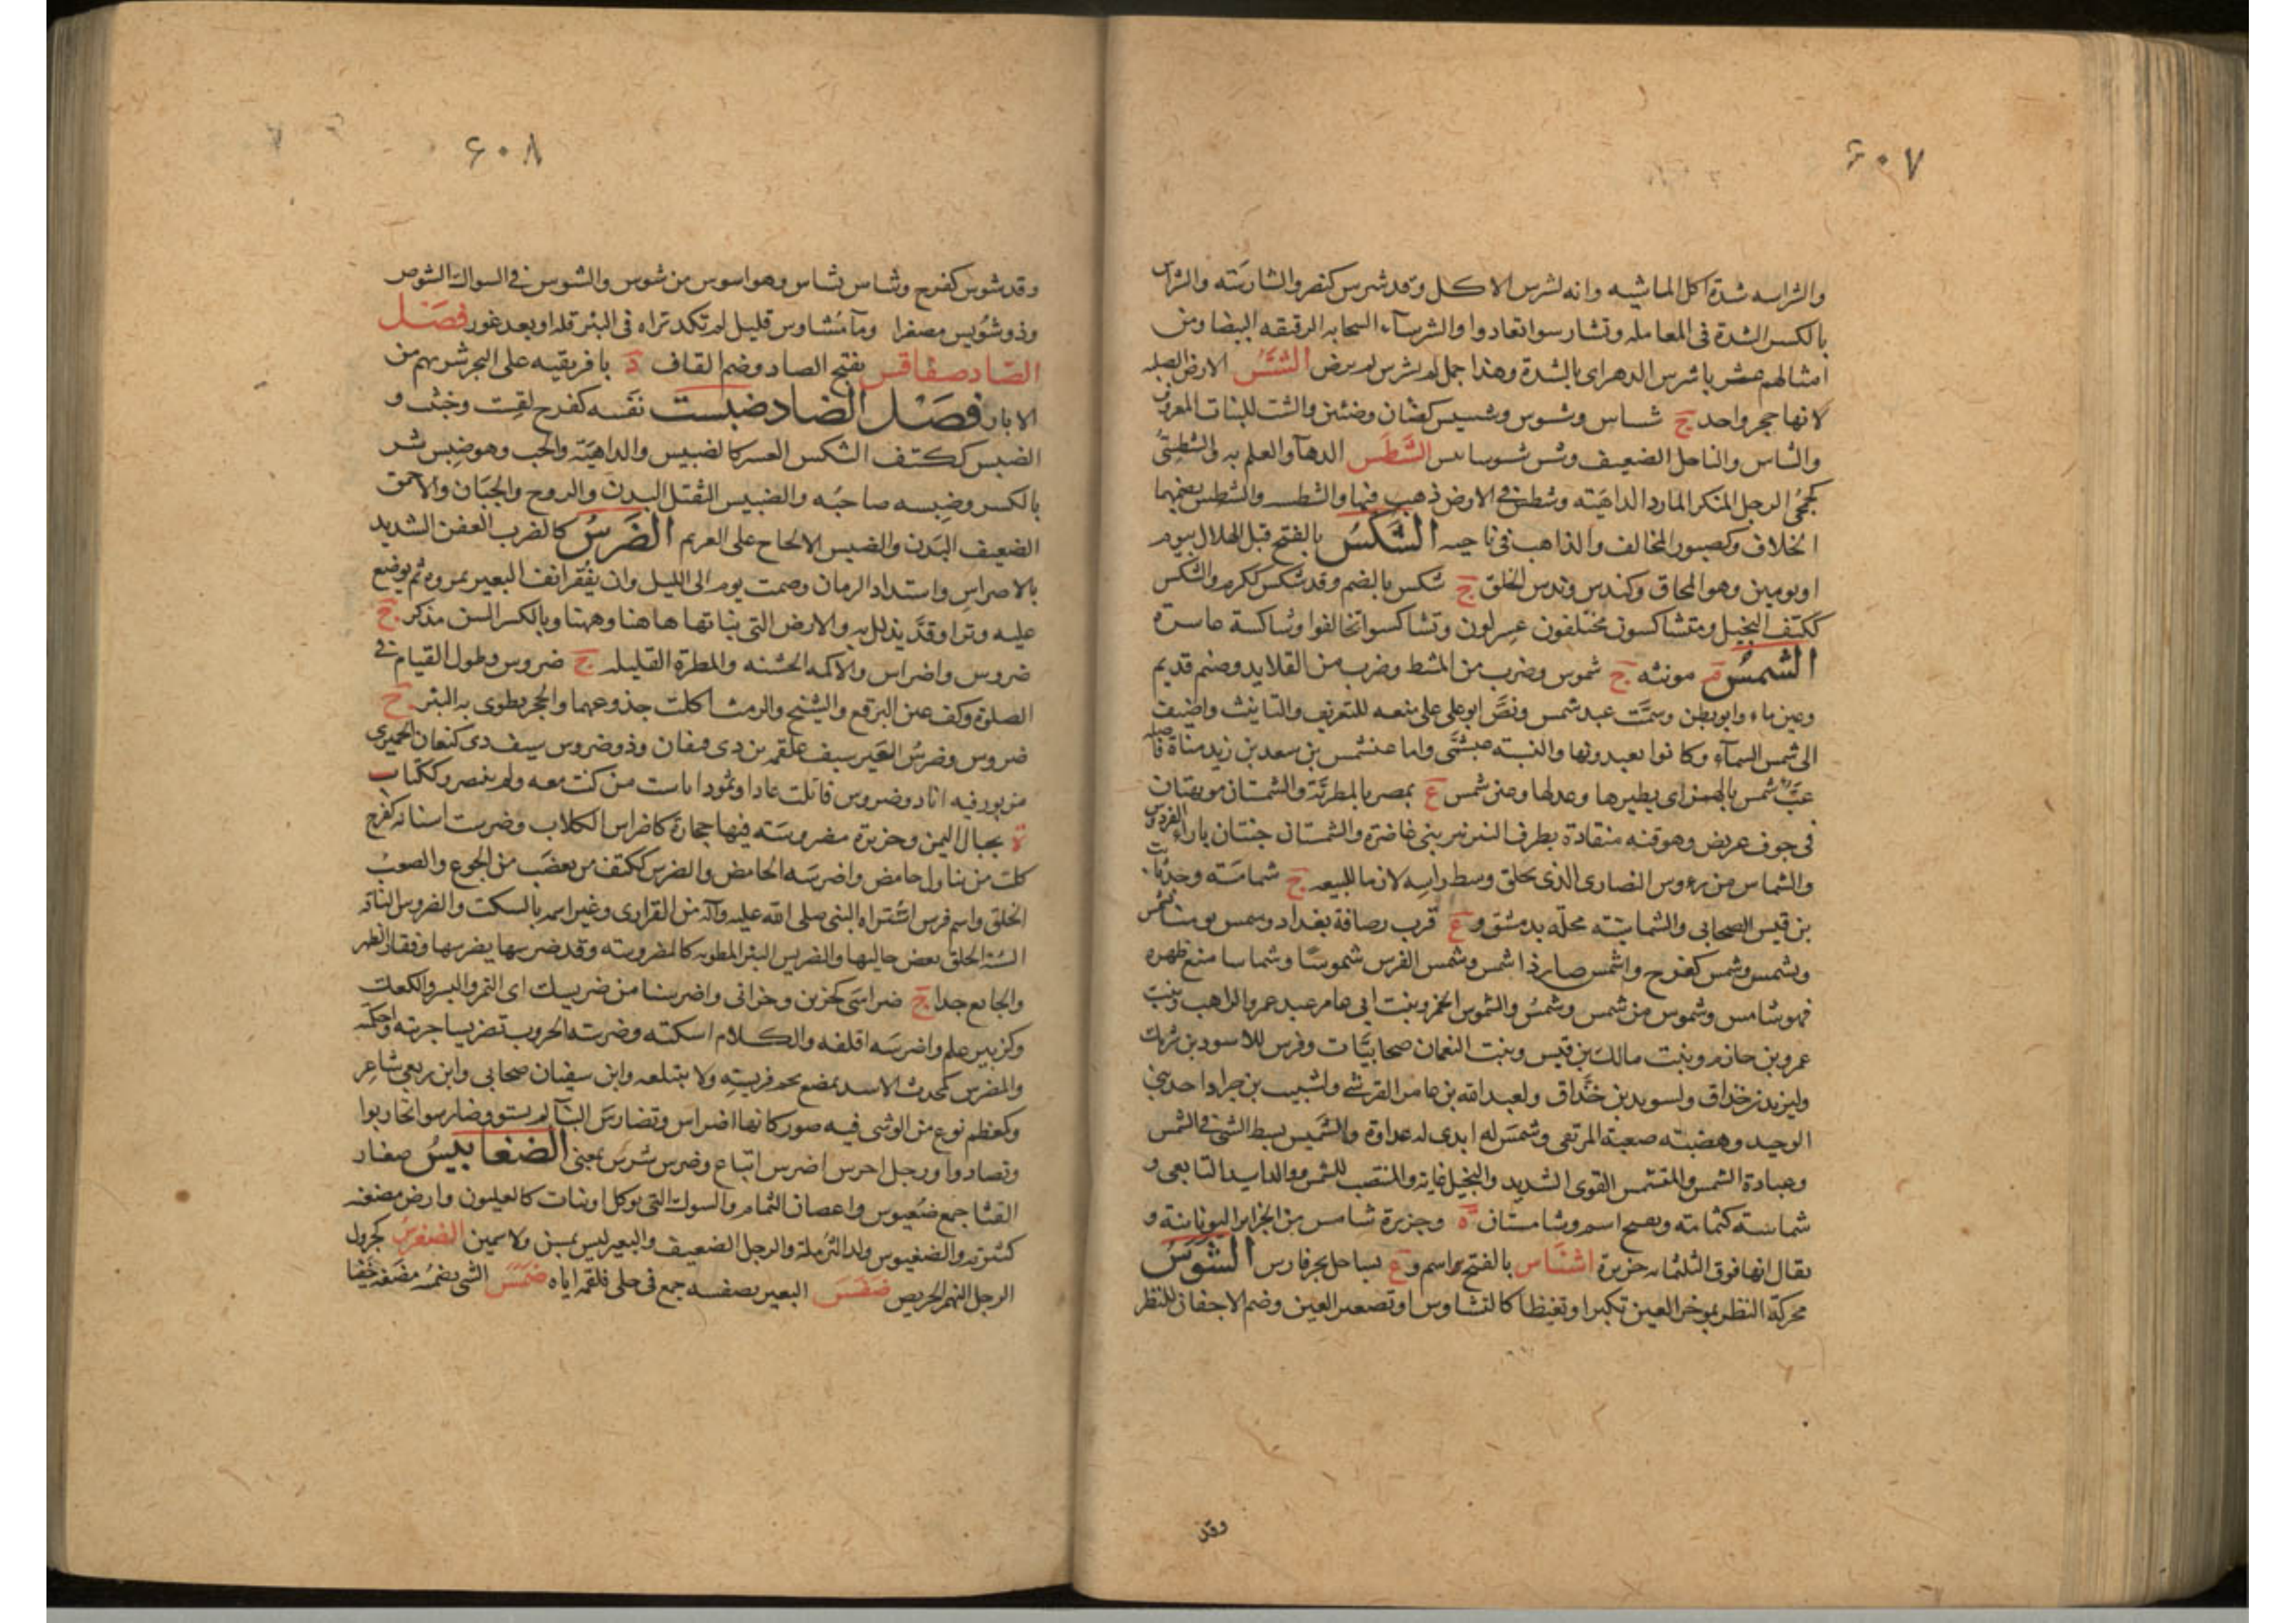 ٦٠٧
والشراسه شدة اكل الماشيه وانه لشرس الاكل وقد شرس كنصر والشارسَته والشراس
بالكسر الشدة فى المعامله وتشارسوا تعادوا والشرسآء السحابه الرقيقه البيضا ومن
امثالهم عشر باشرس الدهر اى بالشدة وهذا جمل لم يشرس لم يرض الشَّسُّ الارض الصلبه
لانها حجر واحد ج شساس وشسوس وشسيس كضأن وضئين والشت للنبات المعروف
والشاس والناحل الضعيف وشس شسوسا يبس الشَّطَس الدهآ والعلم به والشطسِىُّ
كجمحىُّ الرجل المنكر المارد الداهيته وشطس فى الارض ذهب فيها والشطسه والشطس بضمهما
الخلاف وكصبور المخالف والذاهب فى ناحيه الشَّكْسُ بالفتح قبل الهلال بيوم
او يومين وهو المحاق وكندس وندس الخلق ج شكس بالضم وقد شكس ككرم والشكس
ككتف البخيل ومتشاكسون مختلفون عسرلون وتشاكسوا تخالفوا وشاكسة عاسره
الشمسُ م مونثه ج شموس وضرب من المشط وضرب من القلايد وصنم قديم
وعين ماء وابو بطن وسمَّت عبد شمس ونصَّ ابو على على منعه للتعريف والتانيث واضيف
الى شمس السمآء وكانوا يعبدونها والنسبته عبشمَّى واما عبشمس بن سعد بن زيد مناة فاصله
عبُّ شمس بالهمز اى يطيرها وعدلها وعين شمس ع بمصر بالمطريَّة والشمستان مويهتان
فى جوف عريض وهو قنه منقادة بطرف النير نير بنى غاضرة والشمستان جنتان بازاء الفردوس
والشماس من رءوس النصارى الذى يحلق وسط راسه لازما للبيعه ج شمامسَته وجد ثابت
بن قيس الصحابى والشماسيّته محلّه بدمشق وع قرب رصافة بغداد وشمس يومنا يشمُس
ويشمِس وشمس كفرح واشمس صار ذا شمس وشمس الفرس شموسًا وشماسا منع ظهره
فهو شامس وشموس من شمس وشمسُ والشموس الخمر وبنت ابى عامر عبد عمرو الراهب وبنت
عمرو بن حازم وبنت مالك بن قيس وبنت النعمان صحابيَّات وفرس للاسود بن شريك
وليزيد بن خذاق ولسويد بن خذَّاق ولعبد الله بن عامر القرشى ولشبيب بن جراد احد بنى
الوحيد وهضبته صعبة المرتقى وشمسَ له ابدى له عداوة والتشميس بسط الشى فى الشمس
وعبادة الشمس والمتشمس القوى الشديد والبخيل غاية والمنتصب للشمس ووالد اسيد التابعى و
شماسته كثمامته ويصح اسم وشامستان ة وجزيرة شامس من الجزاير اليونانية و
يقال انها فوق الثلثمائه جزيرة اشناس بالفتح اسم وع بساحل بحر فارس الشَّوَسُ
محركة النظر بموخر العين تكبرا وتغيظا كالتشاوس او تصغير العين وضم الاجفان للنظر
وقد
٦٠٨
وقد شوس كفرح وشاس يشاس وهو اشوس من شوس والشوس فى السواك الشوص
وذو شُوَيس مصغرا ومآ مُشاوس قليل لم تكد تراه فى البئر قله او بعد غور فصَل
الصَّاد صفاقس بفتح الصاد وضم القاف د بافريقيه على البحر شربهم من
الابار فصَل الضاد ضبست نفسه كفرح لقست وخبثت و
الضبس ككتف الشكس العسر كالضبيس والداهيَة والخب وهو ضِبس شر
بالكسر وضبِسه صاحبُه والضبيس الثقيل البدن والروح والجبَان والاحمق
الضعيف البَدن والضبس الالحاح على الغريم الضَرسُ كالضرب العض الشديد
بالاضراس واشتداد الزمان وصمت يوم الى الليل وان يفقر انف البعير بمروة ثم يوضع
عليه وترا وقدَّ يذلل به والارض التى نباتها هاهنا وههنا وبالكسر السن مذكر ج
ضروس واضراس والاكمه الخشنه والمطرة القليله ج ضروس وطول القيام فى
الصلوة وكف عين البرقع والشيح والرمث اكلت جذوعهما والحجر يطوى به البئر ج
ضروس وضرسُ العَير سيف علقمه بن ذى قيفان وذو ضروس سيف ذى كنعان الحميرى
مزبور فيه انا ذو ضروس قاتلت عادا وثمُودا باست من كنت معه ولم ينصر وككتاب
ة بجبال اليمن وحزيرة مضروسَته فيها حجارة كاضراس الكلاب وضرست اسنانه كفرح
كلت من تناول حامض واضرسَه الحامض والضرس ككتف من يغضَب من الجوع والصعب
الخلق واسم فرس اشتراه النبى صلى الله عليه وآله من الفزارى وغير اسمه بالسكت والضروس الناقه
السَّيئة الخلق يعض حالبها والضريس البئر المطويه كالمضروسته وقد ضرسها يضرسها وفقار الظهر
والجايع جدا ج ضراسَى كحزين وحزانى واضرسنا من ضريسك اى التمر والبسر والكعك
وكزبير علم واضرسَه اقلقه والكلام اسكته وضرسته الحروب تضريسا جربته واحكمَته
والمضرس كمحدث الاسد يمضغ لحم فريسته ولا يبتلعه وابن سفيان صحابى وابن ربعى شاعِر
وكمعظم نوع من الوشى فيه صور كانها اضراس وتضارسَ البنآ لم يستو وضارسوا تحاربوا
وتعادوا ورجل اخرس اضرس اتباع وضرس شرس بمعنى الضغابيسُ صغار
القثا جمع ضغبوس واغصان الثمام والشوك التى يوكل او نبات كالهليون وارض مضغبه
كثيرته والضغبوس ولد الثرملة والرجل الضعيف والبعير ليس بمسن ولا سمين الضغرسُ كجرول
الرجل النهم الحريص ضفَسَ البعير يضفسه جمع فى حلى فلقمه اياه ضمَسَ الشى يضمسُه مضَغه خفيا